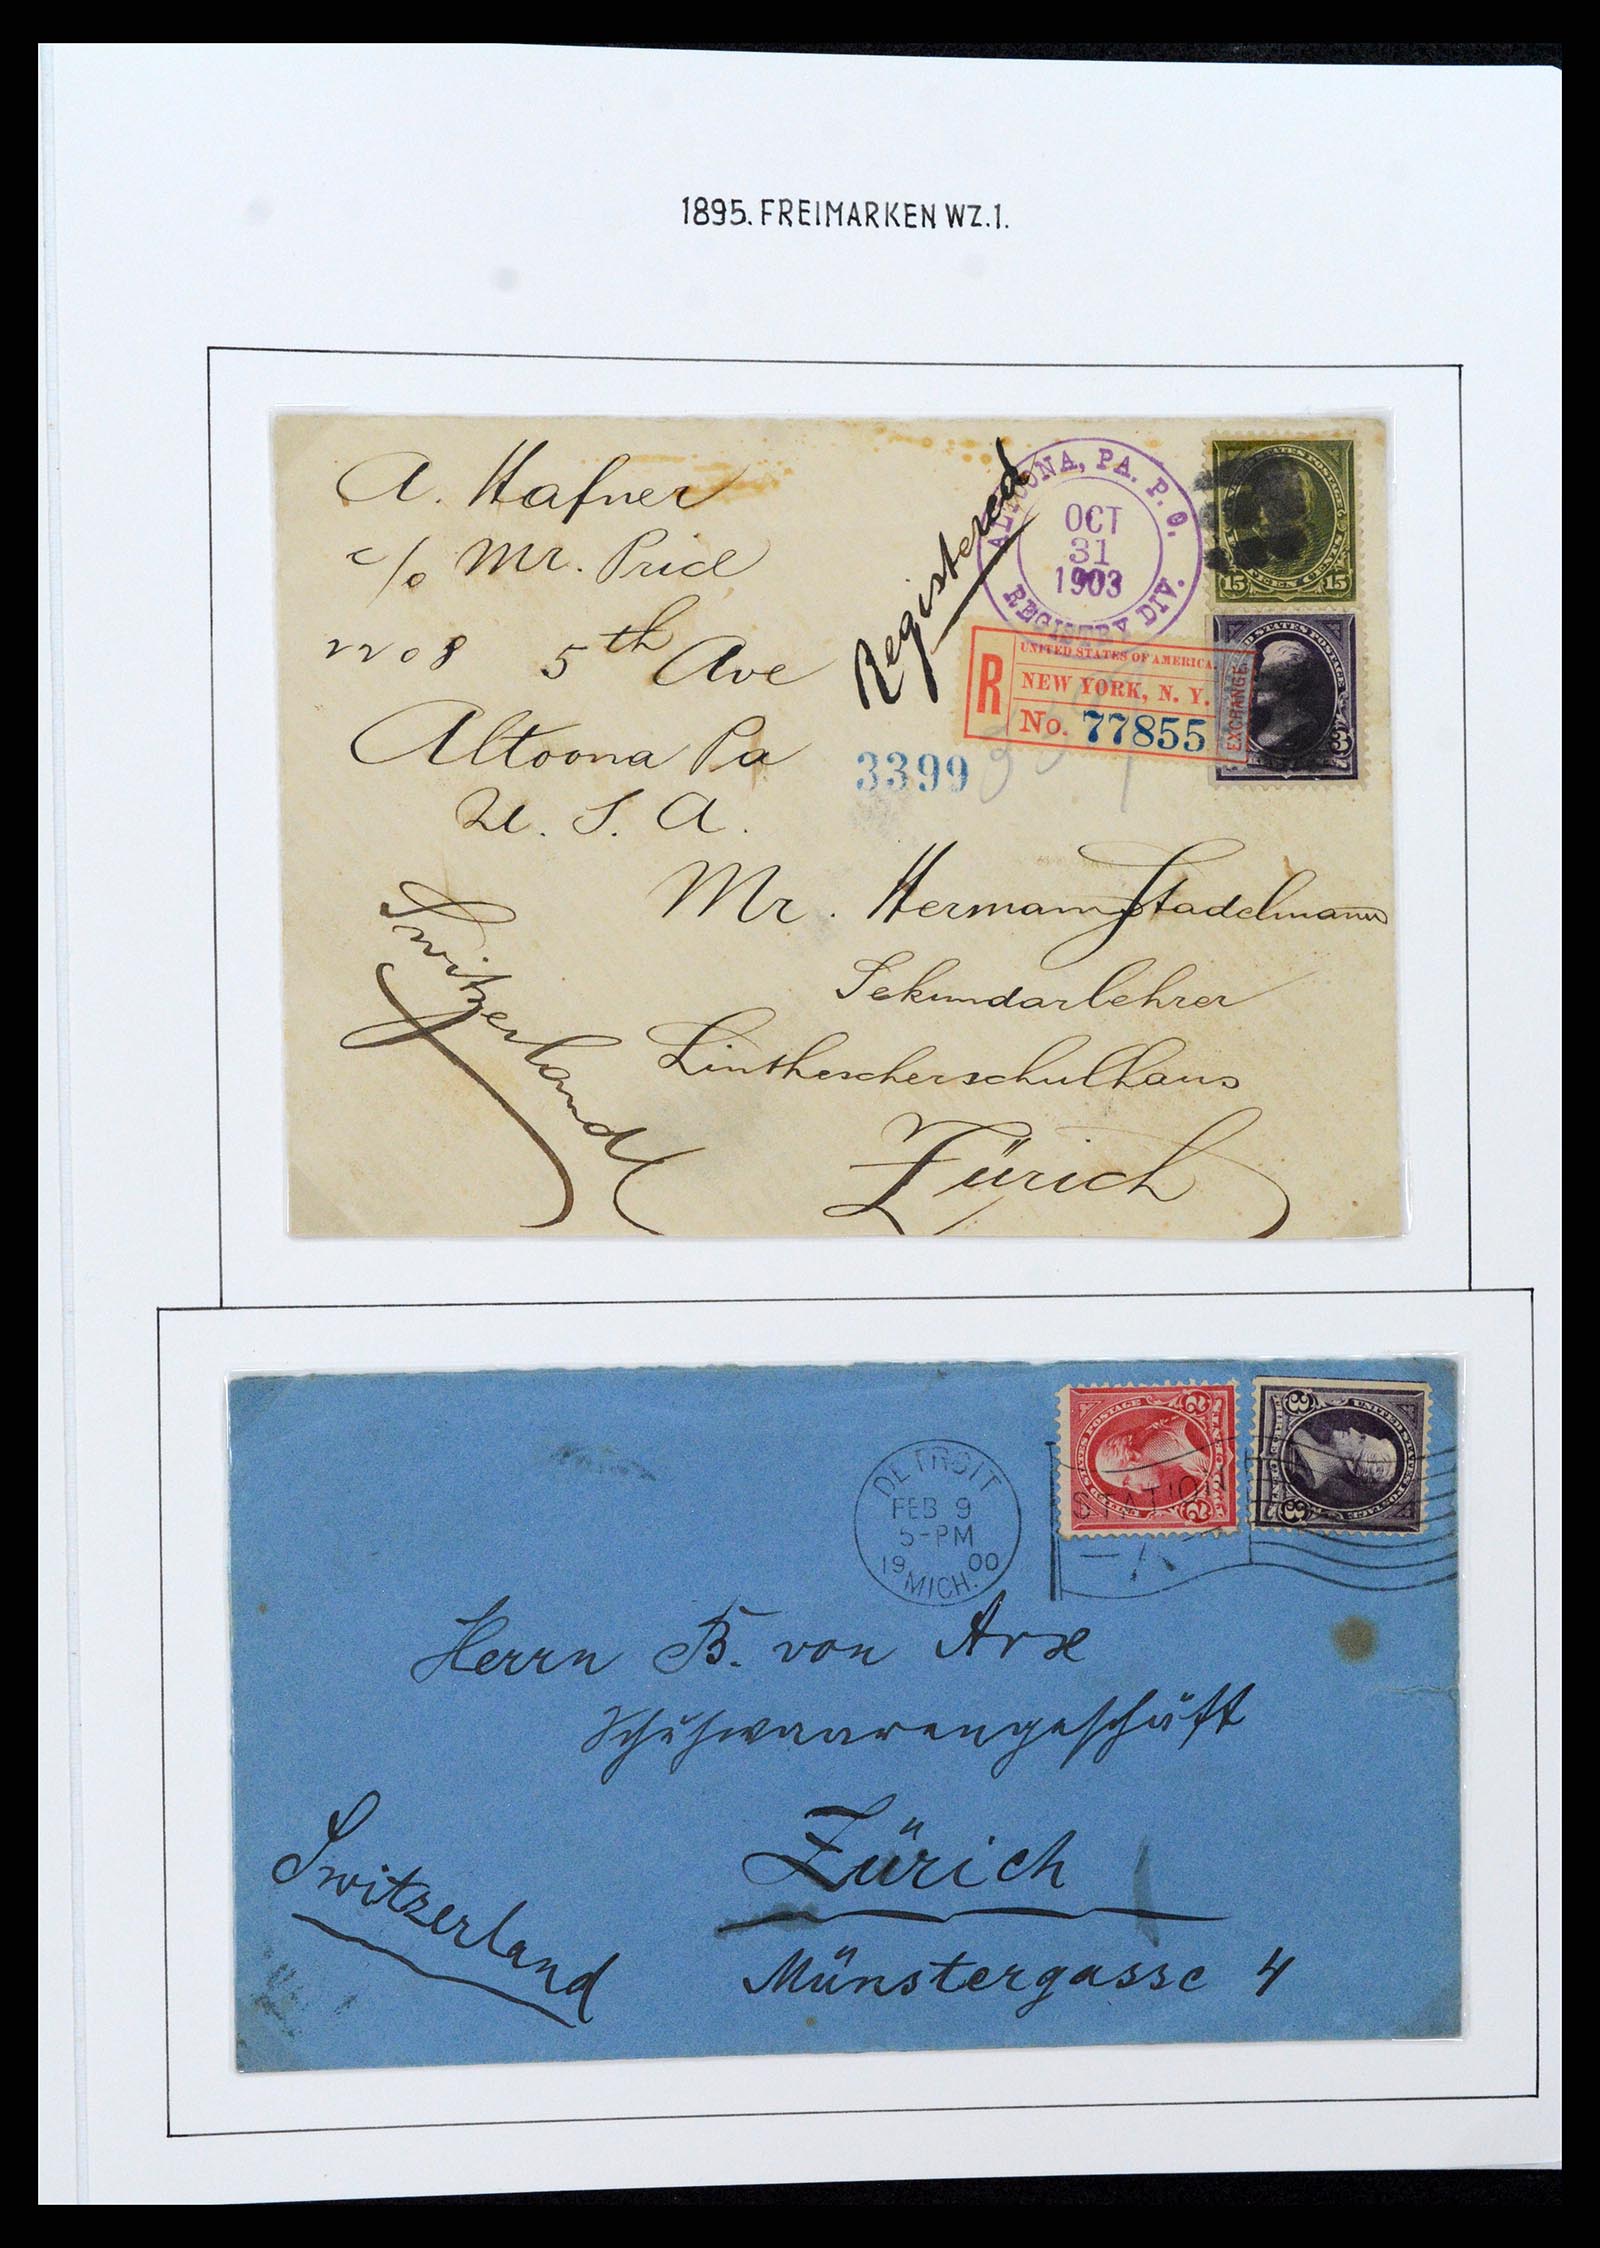 1895. FREIMARKEN WZ.1.
A. Hafner
c/o Mr. Price
2208 5th Ave
Altoona Pa
U. S. A.
Registered
ALTOONA, PA. P. O.
OCT
31
1903
REGISTRY DIV.
15 15
R
UNITED STATES OF AMERICA.
NEW YORK, N. Y.
No. 77855
EXCHANGE
3399
Mr. Hermann Stadelmann
Sekundarlehrer
Linthescherschulhaus
Zürich
Switzerland
DETROIT
FEB 9
5-PM
19 00
MICH.
STATION
A
UNITED STATES POSTAGE
2 2
3 3
Herrn B. von Arx
Schuhwaarengeschäft
Zürich
Münstergasse 4
Switzerland